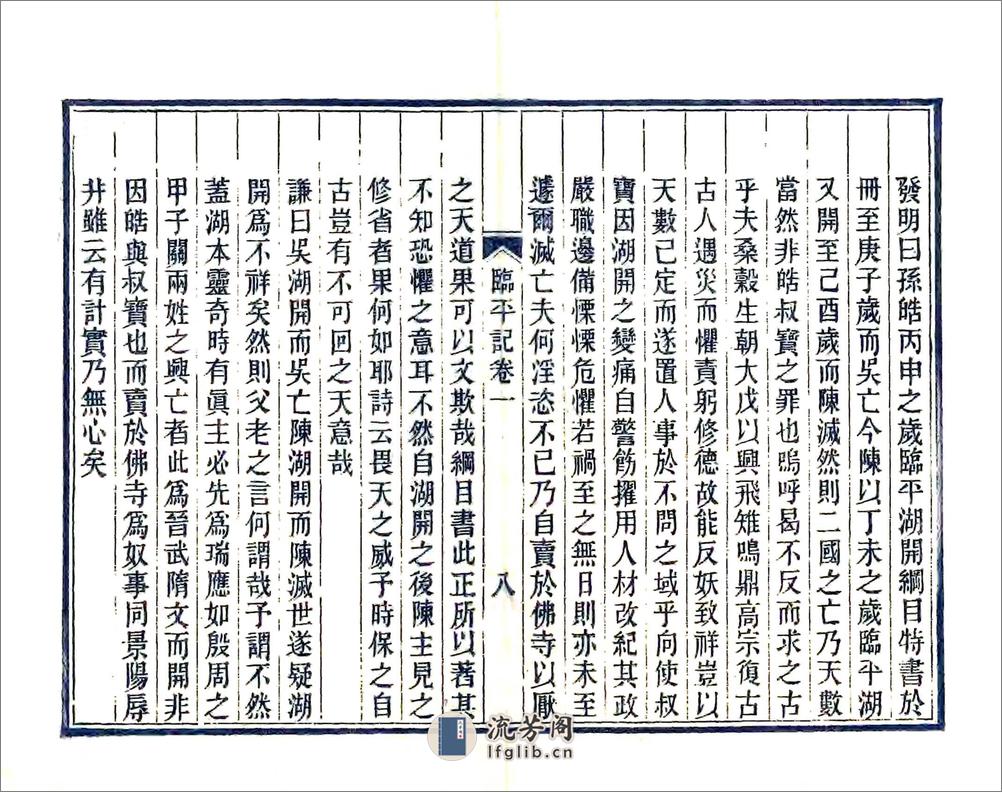 發明曰孫皓丙申之歲臨平湖開綱目特書於
冊至庚子歲而吳亡今陳以丁未之歲臨平湖
又開至己酉歲而陳滅然則二國之亡乃天數
當然非皓叔寶之罪也嗚呼曷不反而求之古
乎夫桑穀生朝大戊以興飛雉鳴鼎高宗復古
古人遇災而懼責躬修德故能反妖致祥豈以
天數已定而遂置人事於不問之域乎向使叔
寶因湖開之變痛自警飭擢用人材改紀其政
嚴職邊備慄慄危懼若禍至之無日則亦未至
遽爾滅亡夫何淫恣不已乃自賣於佛寺以厭
臨平記卷一
八
之天道果可以文欺哉綱目書此正所以著其
不知恐懼之意耳不然自湖開之後陳主見之
修省者果何如耶詩云畏天之威予時保之自
古豈有不可回之天意哉
謙曰吳湖開而吳亡陳湖開而陳滅世遂疑湖
開爲不祥矣然則父老之言何謂哉予謂不然
蓋湖本靈奇時有眞主必先爲瑞應如殷周之
甲子關兩姓之興亡者此爲晉武隋文而開非
因皓與叔寶也而賣於佛寺爲奴事同景陽辱
井雖云有計實乃無心矣
流芳阁
lfglib.cn